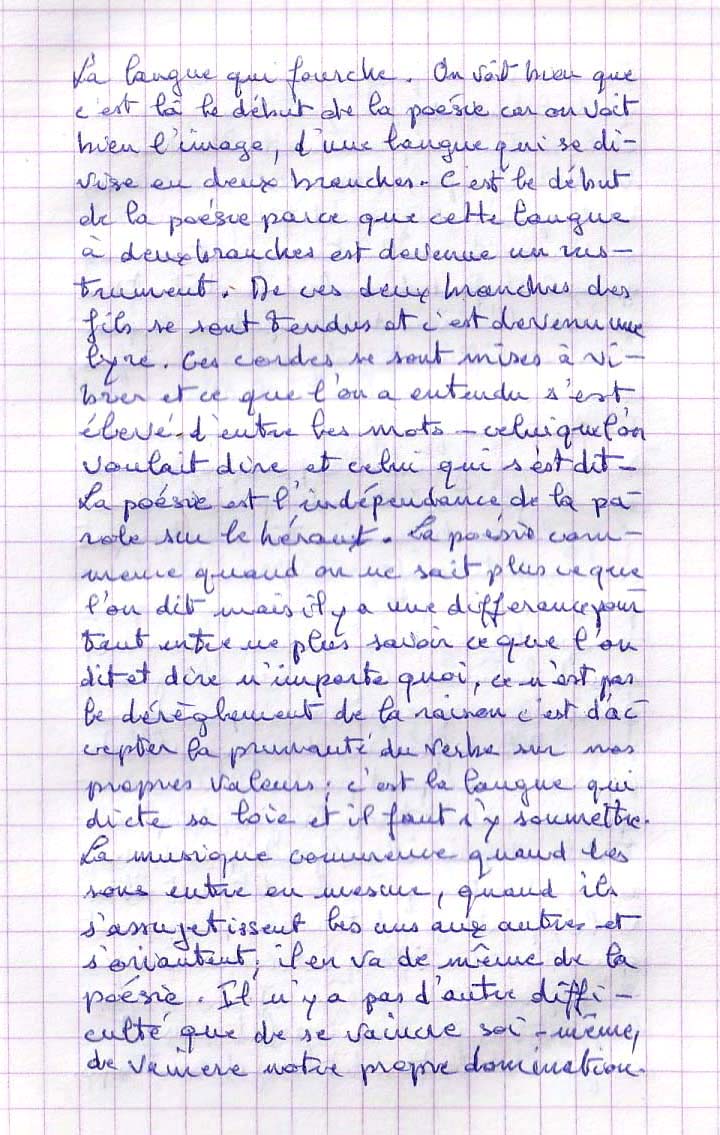 La langue qui fourche. On voit bien que
c'est là le début de la poésie car on voit
bien l'image, d'une langue qui se di-
vise en deux branches. C'est le début
de la poésie parce que cette langue
à deux branches est devenue un ins-
trument. De ces deux branches des
fils se sont tendus et c'est devenu une
lyre. Ces cordes se sont mises à vi-
brer et ce que l'on a entendu s'est
élevé d'entre les mots - celui que l'on
voulait dire et celui qui s'est dit -
La poésie est l'indépendance de la pa-
role sur le héraut. La poésie com-
mence quand on ne sait plus ce que
l'on dit mais il y a une différence pour
tant entre ne plus savoir ce que l'on
dit et dire n'importe quoi, ce n'est pas
le dérèglement de la raison c'est d'ac-
cepter la primauté du verbe sur nos
propres valeurs; c'est la langue qui
dicte sa loie et il faut s'y soumettre.
La musique commence quand les
sons entre en mesure, quand ils
s'assujetissent les uns aux autres et
s'oriantent; il en va de même de la
poésie. Il n'y a pas d'autre diffi-
culté que de se vaincre soi-même,
de vaincre notre propre domination.